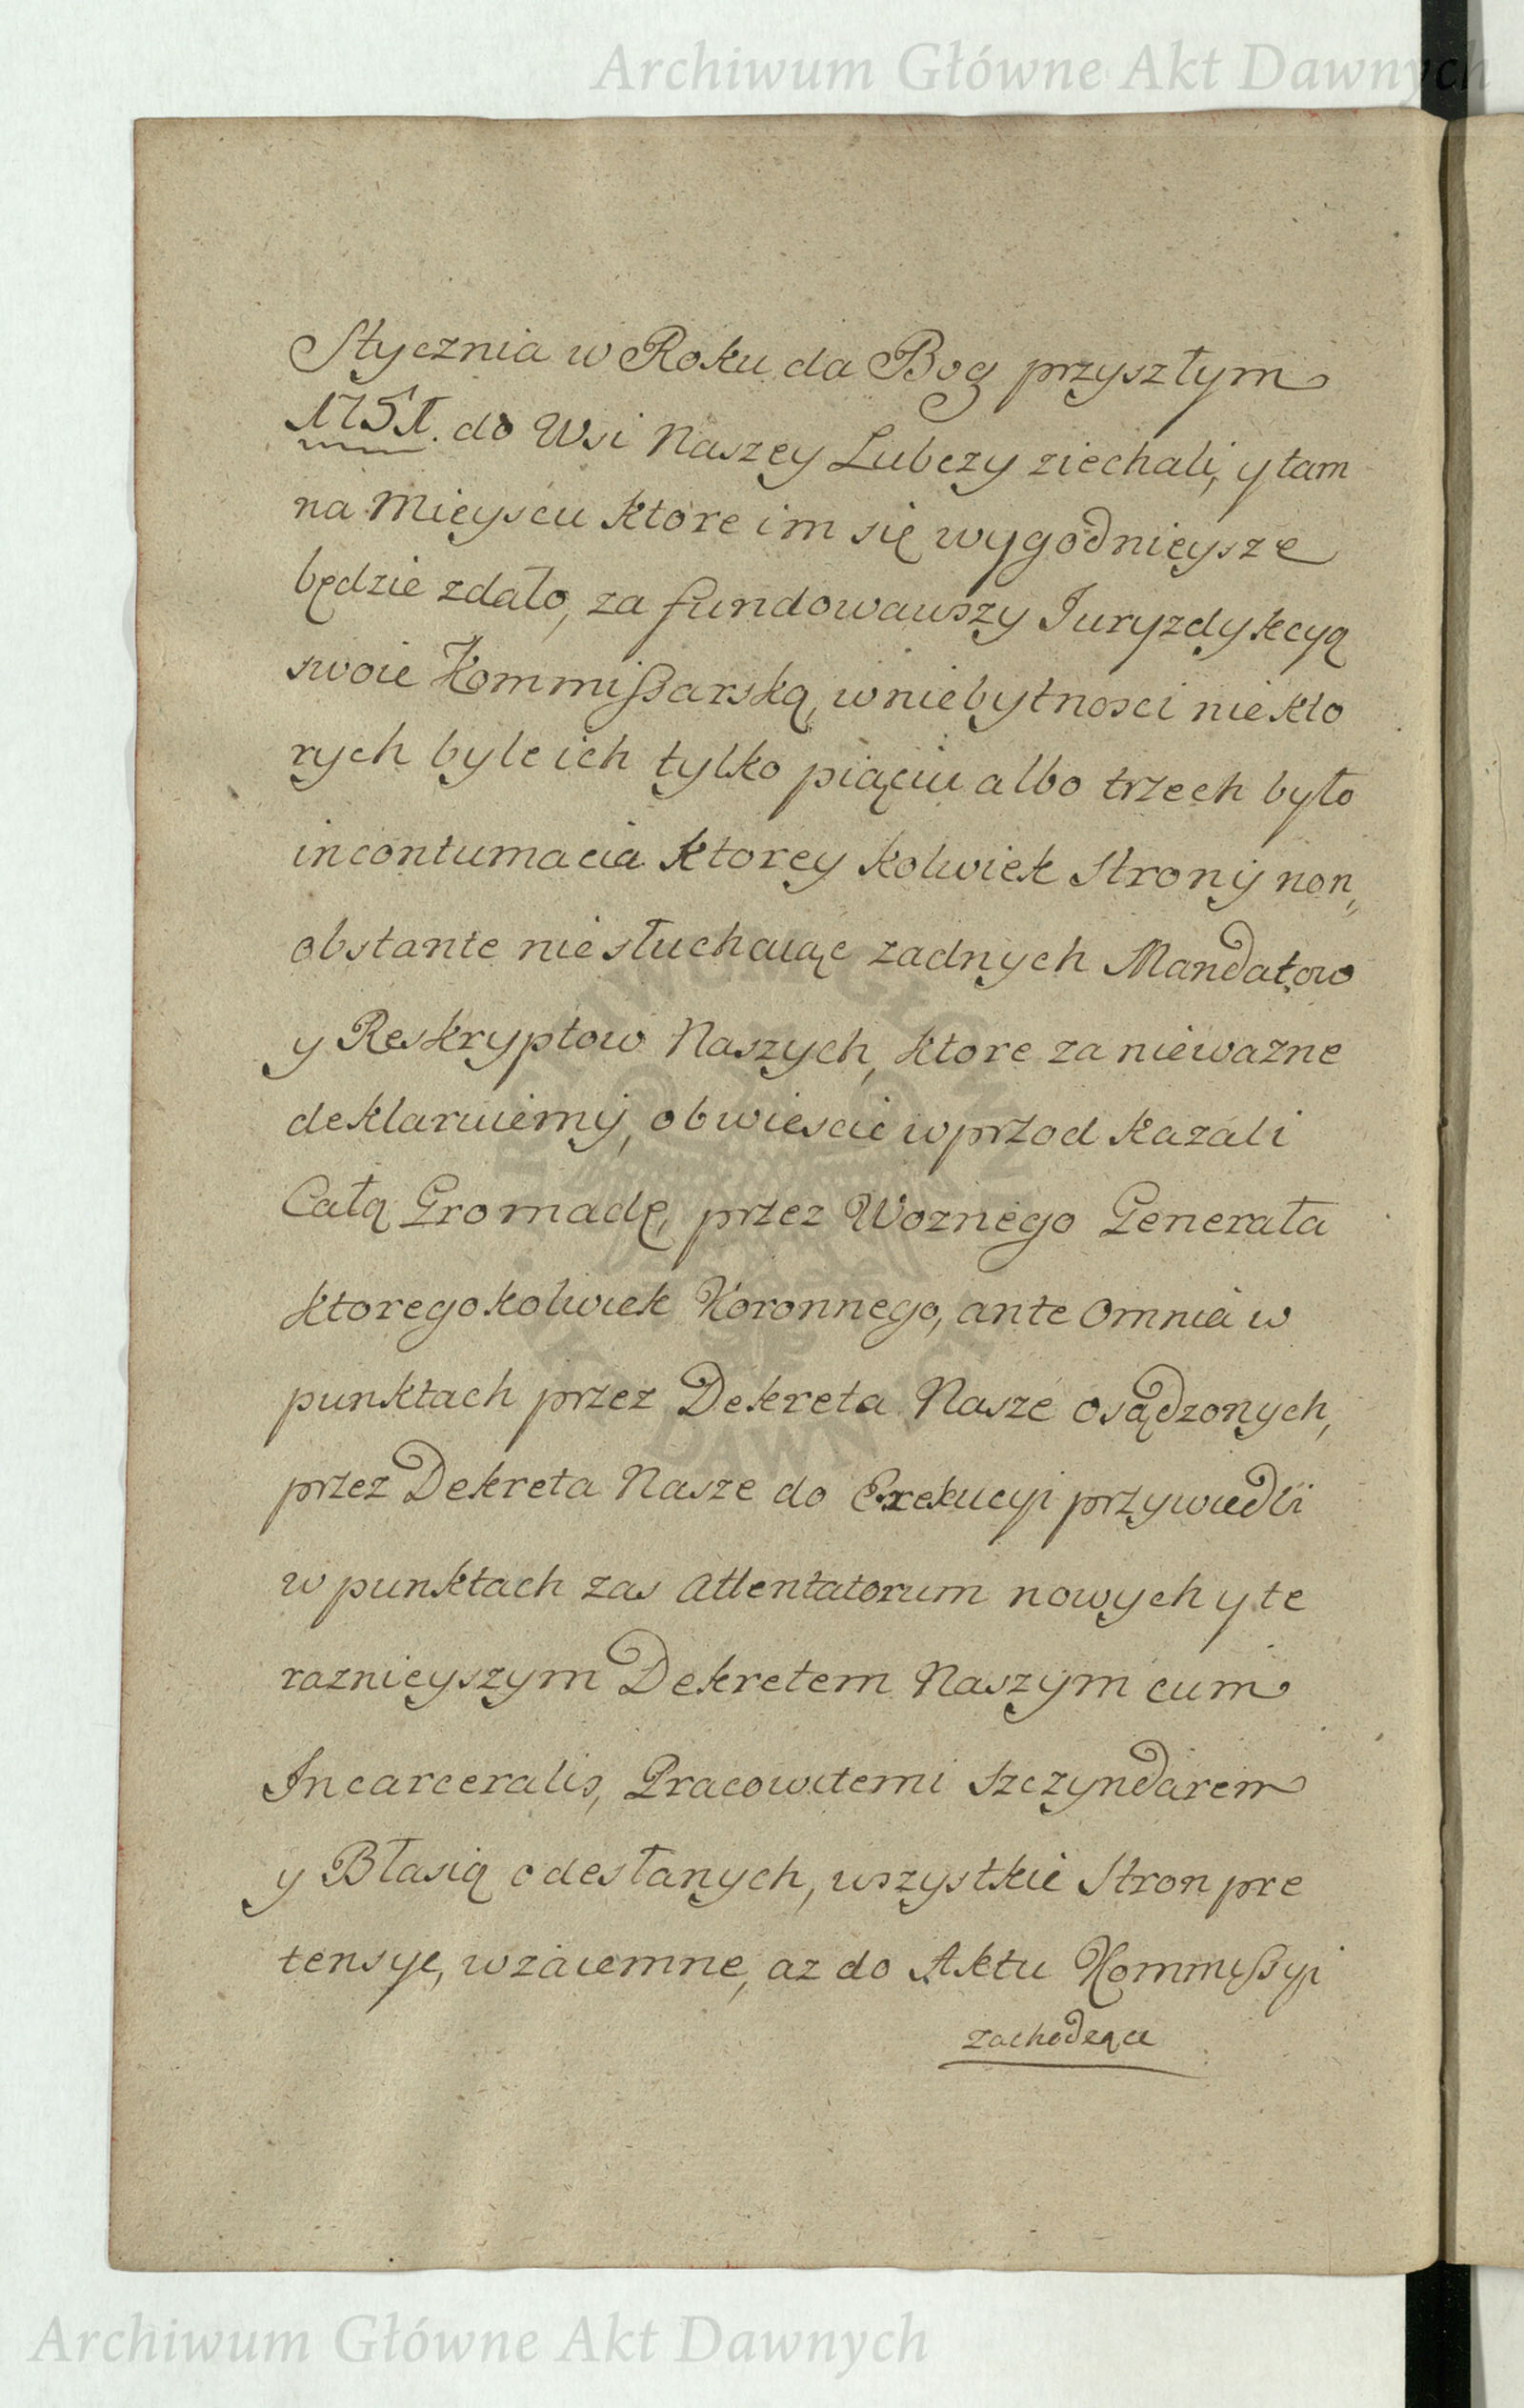 Archiwum Główne Akt Dawnych
Stycznia w Roku da Bog przyszłym
1751. do Wsi Naszey Lubczy ziechali, y tam
na Mieyscu ktore im się wygodnieysze
będzie zdało, za fundowawszy Juryzdykcyą
swoie Kommißarską, w niebytnosci niekto
rych byle ich tylko piąciu albo trzech było
in contumacia ktorey kolwiek Strony non,,
obstante nie słuchaiąc zadnych Mandatow
y Reskryptow Naszych, ktore za niewazne
deklaruiemy, obwiescic wprzod kazali
Całą Gromadę, przez Woznego Generała
ktoregokolwiek Koronnego, ante omnia w
punktach przez Dekreta Nasze osądzonych,
przez Dekreta Nasze do Exekucyi przywiedli
w punktach zas attentatorum nowych y te
raznieyszym Dekretem Naszym cum
Incarceratis, Pracowitemi Szczyndarem
y Błasią odesłanych, wszystkie Stron pre
tensye, wzaiemne, az do Aktu Kommißyi
zachodzące
Archiwum Główne Akt Dawnych